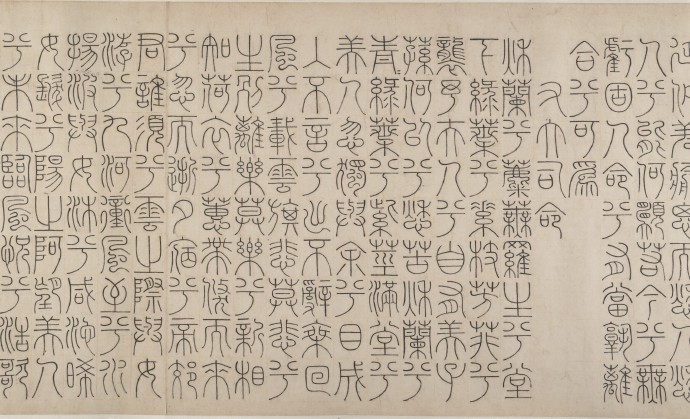 延佇羌愈思而愁人愁
人兮柰何願若今兮無
虧固人命兮有當孰離
合兮可爲
右大司命
秋蘭兮蘪蕪羅生兮堂
下綠葉兮素枝芳菲兮
襲予夫人兮自有美子
蓀何以兮愁苦秋蘭兮
青〻綠葉兮紫莖滿堂兮
美人忽獨與余兮目成
入不言兮出不辭椉回
風兮載雲旗悲莫悲兮
生別離樂莫樂兮新相
知荷衣兮蕙帶倏而來
兮忽而逝夕宿兮帝郊
君誰須兮雲之際與女
游兮九河衝風至兮水
揚波與女沐兮咸池晞
女髮兮陽之阿望美人
兮未來臨風怳兮浩歌